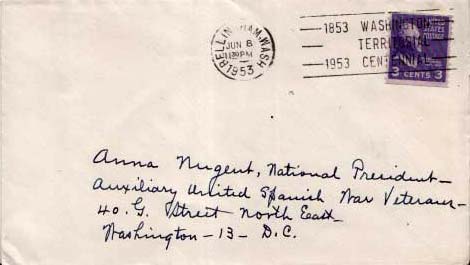 BELLINGHAM, WASH.
JUN 8
1953
1853 WASHINGTON
TERRITORIAL
1953 CENTENNIAL
UNITED STATES
POSTAGE
3 CENTS 3
Anna Nugent, National President—
Auxiliary United Spanish War Veterans—
40. G. Street North East—
Washington — 13 — D.C.